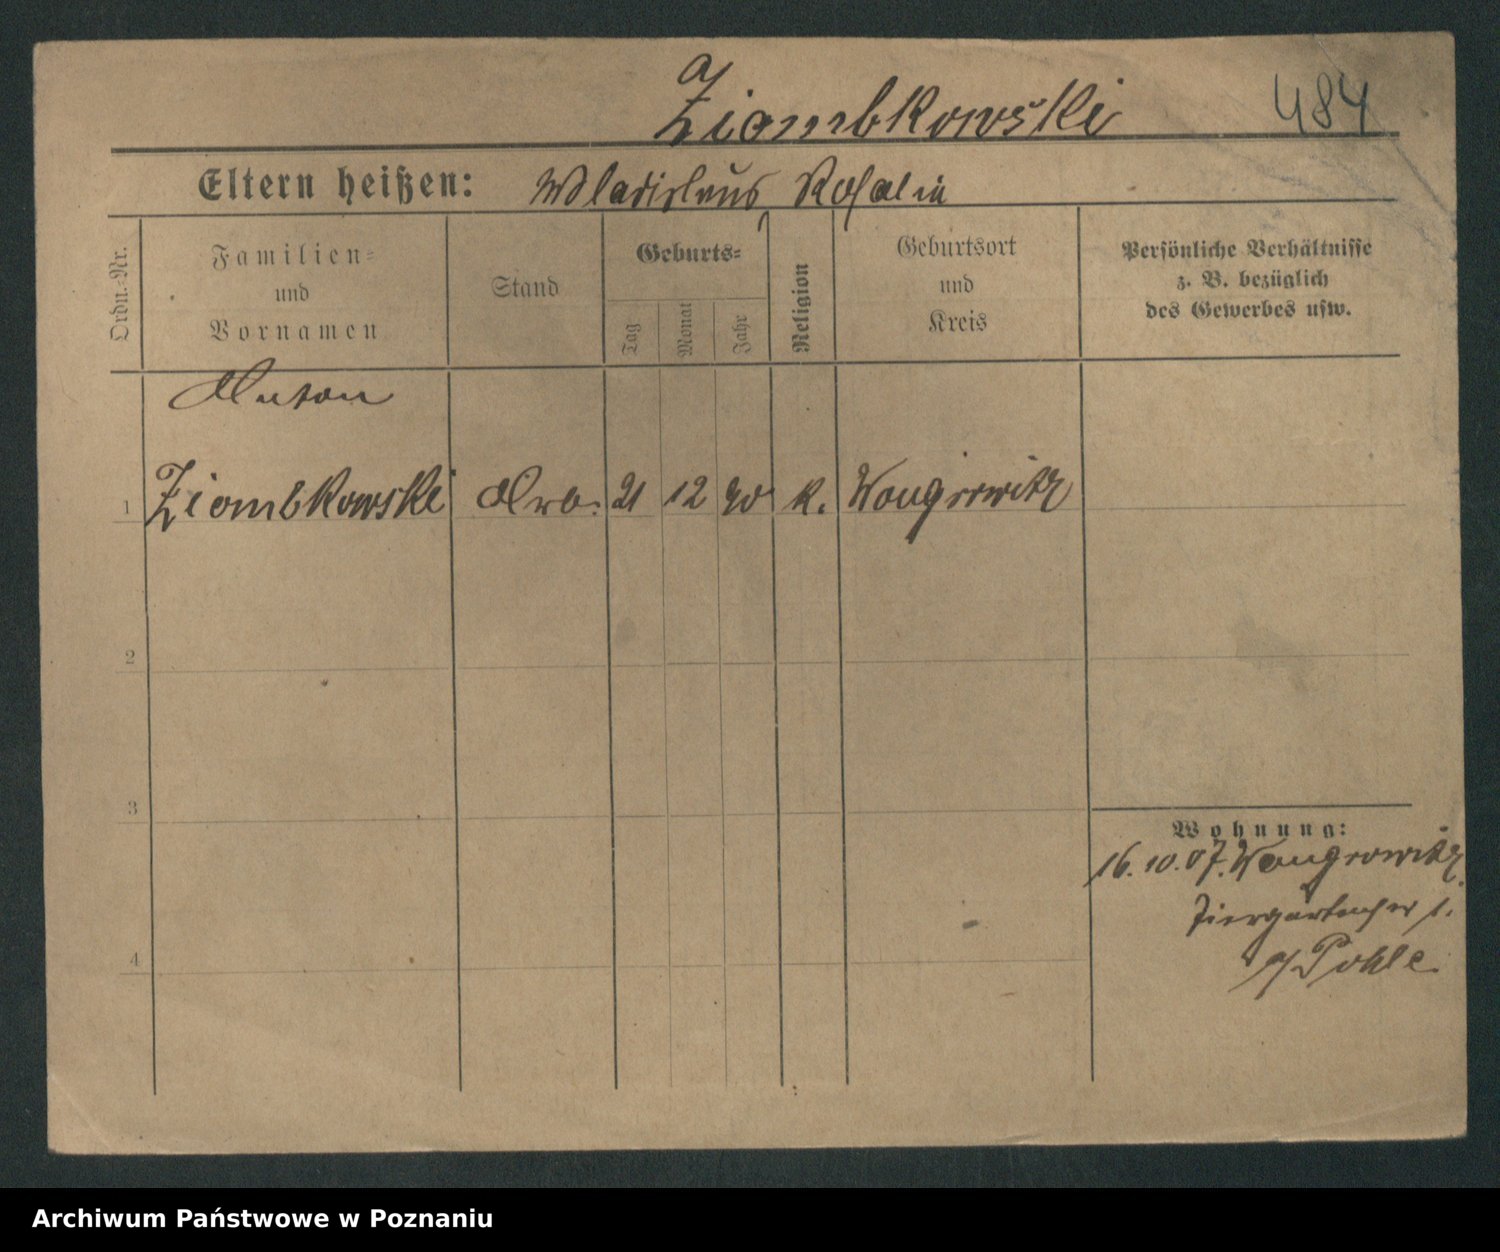 Ziombkowski 484
Eltern heißen: Wladislaus Rosalia
Ordn.=Nr.
Familien=
und
Vornamen
Stand
Geburts=
Tag
Monat
Jahr
Religion
Geburtsort
und
Kreis
Persönliche Verhältnisse
z. B. bezüglich
des Gewerbes usw.
Anton
1 Ziombkowski Arb. 21 12 90 k. Wongrowitz
2
3
4
Wohnung:
16.10.07. Wongrowitz
Tiergartenstr 1.
b/Pohle.